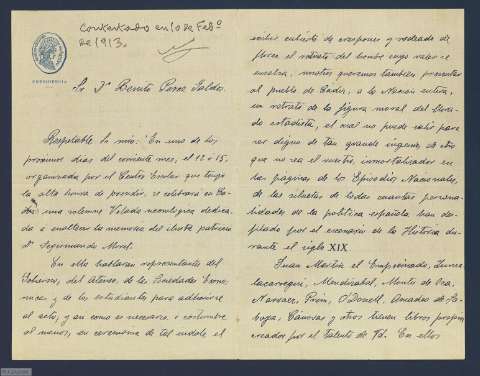 Contestado en 10 de Febº
de 1913.
PRESIDENCIA
Sr. Dn. Benito Perez Galdós.
Respetable Sr. mio: En uno de los
proximos dias del corriente mes, el 12 ó 15,
organizada por el Centro Escolar que tengo
la alta honra de presidir, se celebrará en Cá-
diz una solemne Velada necrológica dedica-
da a enaltecer la memoria del ilustre patricio
Dn. Segismundo Moret.
En ella hablarán representantes del
Gobierno, del Ateneo, de las Sociedades Econó-
micas y de los estudiantes para adherirse
al acto; y asi como es necesario o costumbre
al menos, en ceremonia de tal indole el
exibir cubierto de crespones y rodeado de
flores el retrato del hombre cuyo valer se
ensalza, nosotros queremos tambien presentar
al pueblo de Cadiz, a la Nación entera,
un retrato de la figura moral del llora-
do estadista, el cual no puede salir para
ser digno de tan grande ingenio, de otro
que no sea el suyo, inmortalizador en
las paginas de los Episodios Nacionales,
de las siluetas de todas cuantas persona-
lidades de la politica española han des-
filado por el escenario de la Historia du-
rante el siglo XIX.
Juan Martin el Empecinado, Zuma-
lacarregui, Mendizabal, Montes de Oca,
Narvaez, Prim, O'Donell, Amadeo de Sa-
boya, Cánovas y otros tienen libros propios
creados por el talento de Vd. En ellos